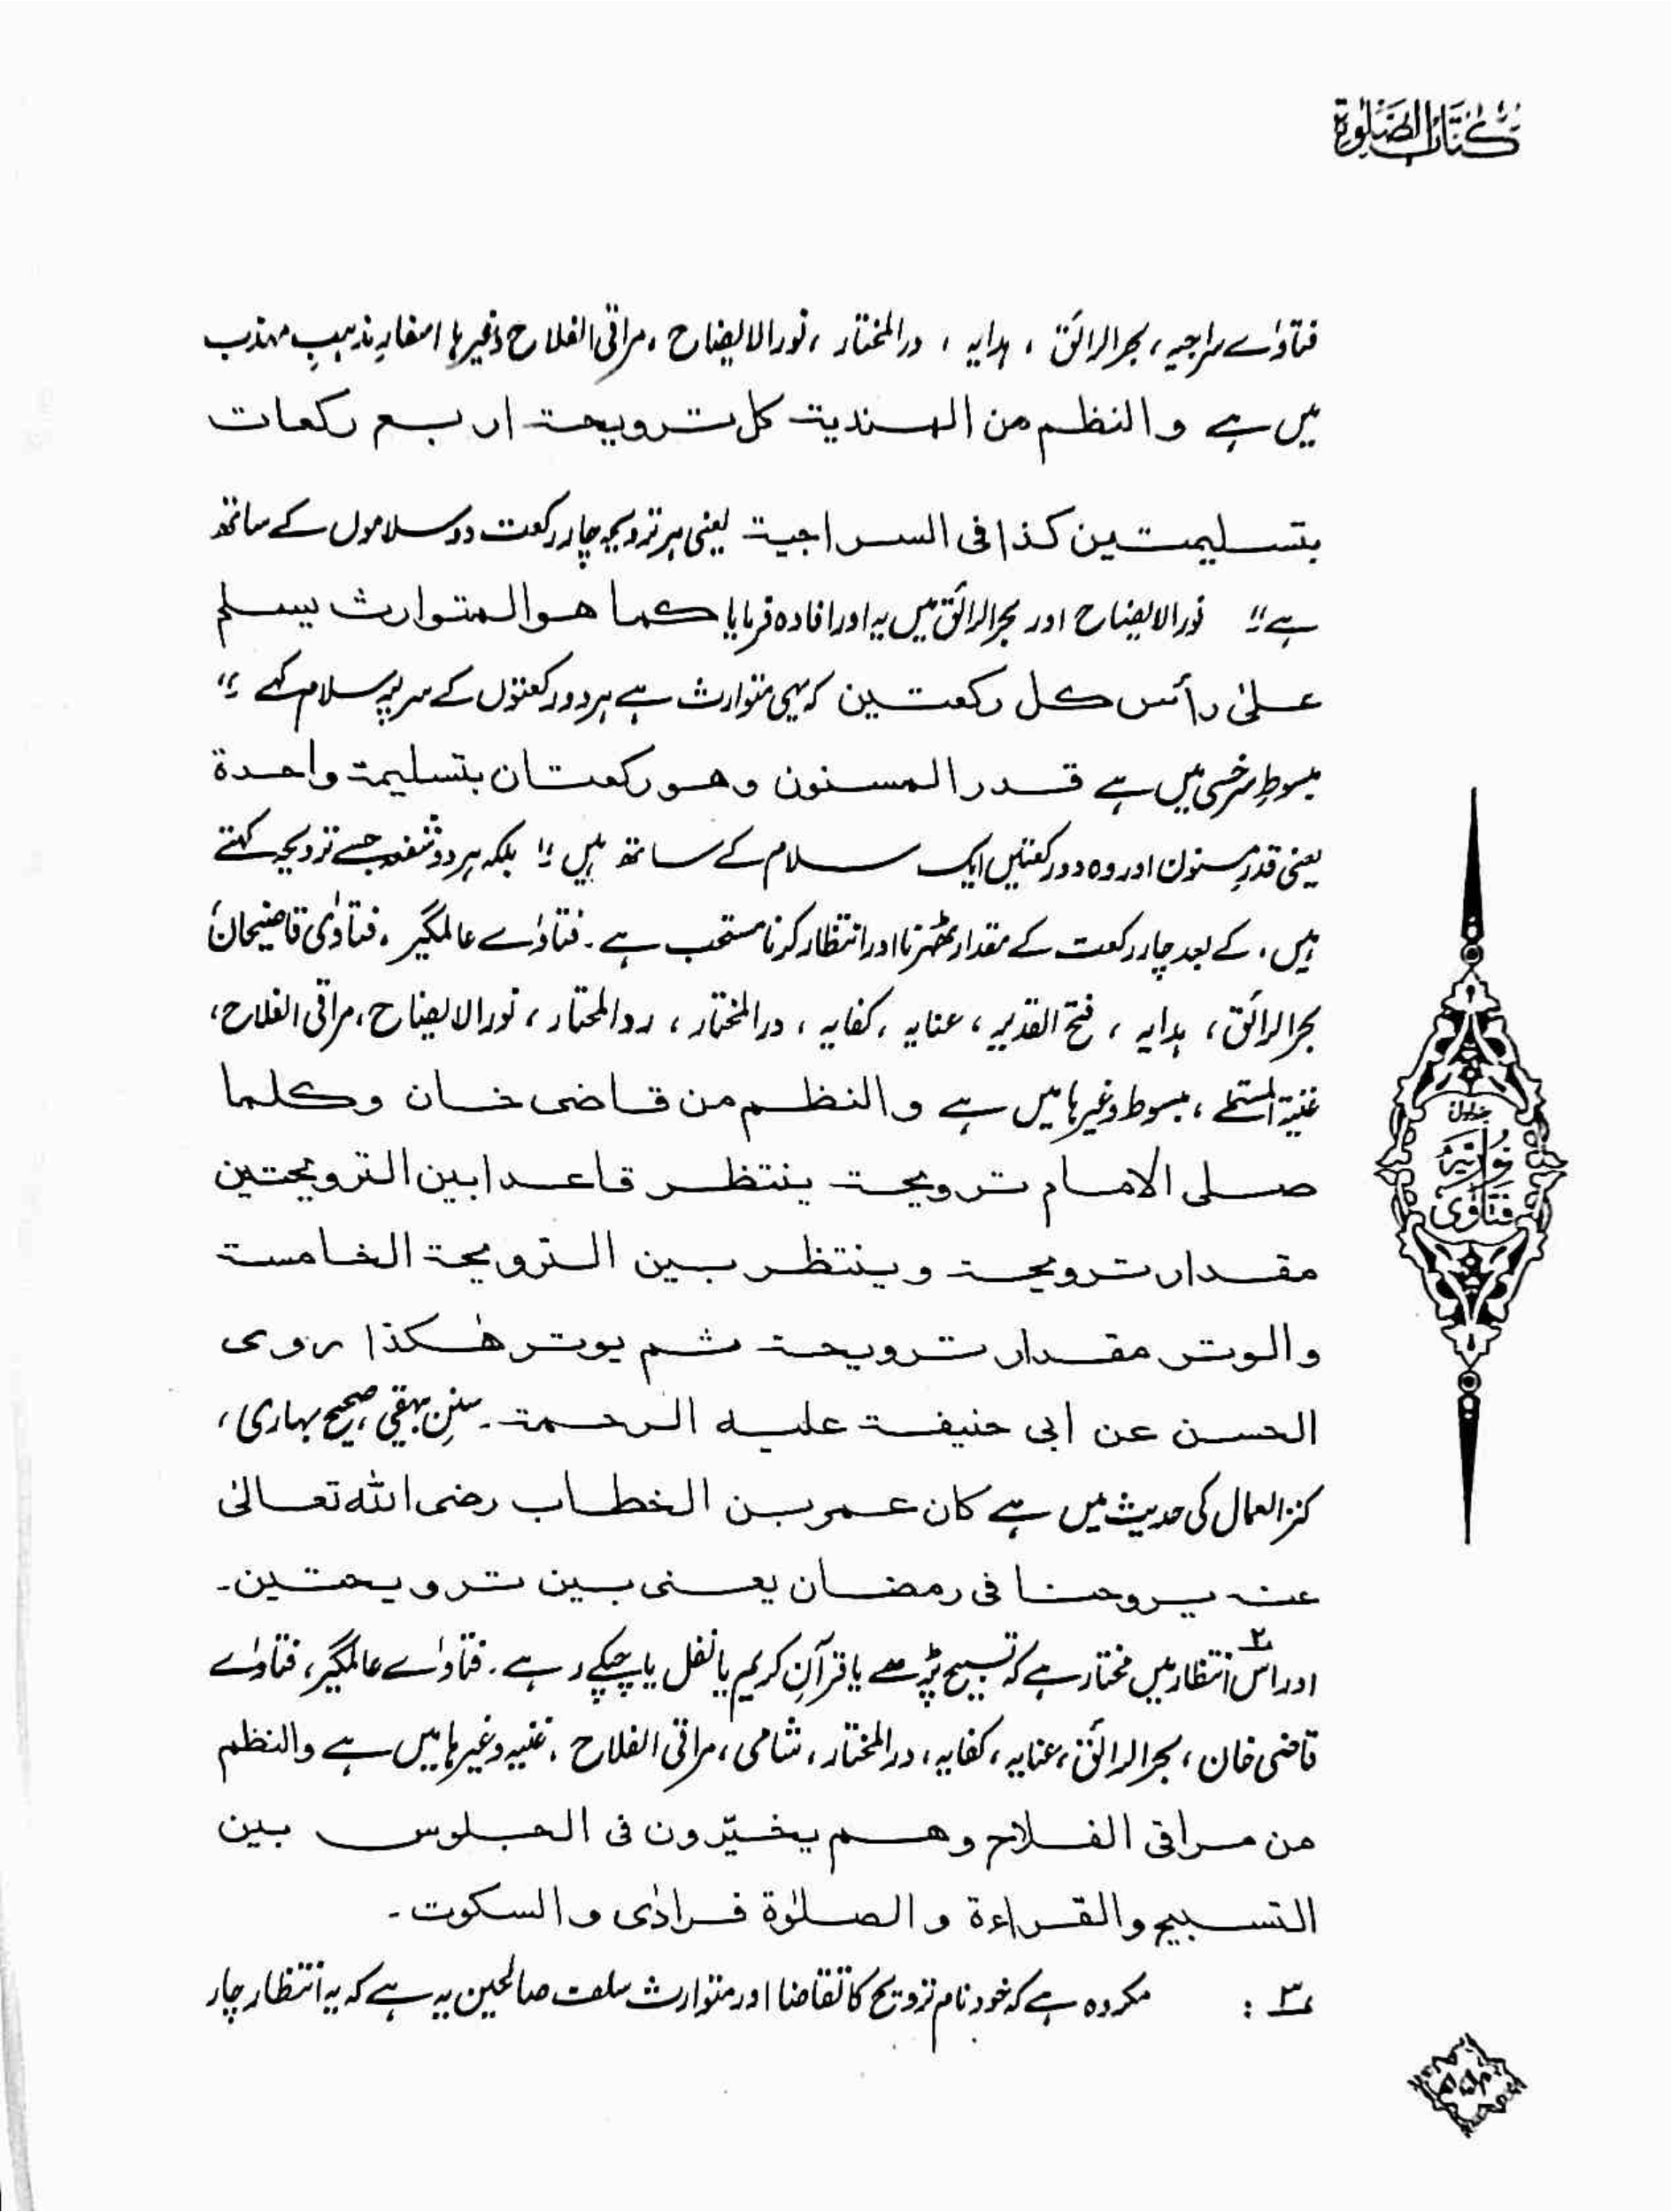 كتاب الصلوة
فتاوٰے سراجیہ، بحرالرائق، ہدایہ، درالمختار، نورالایضاح، مراقی الفلاح وغیرہا اسفارِ مذہبِ مہذب
میں ہے والنظم من الهندية كل ترويحة اربع ركعات
بتسليمتين كذا فى السراجية یعنی ہر ترویحہ چار رکعت دو سلاموں کے ساتھ
ہے" نورالایضاح اور بحرالرائق میں یہ اور افادہ فرمایا كما هو المتوارث يسلم
علىٰ رأس كل ركعتين کہ یہی متوارث ہے ہر دو رکعتوں کے سر پر سلام کہے"
مبسوطِ سرخسی میں ہے قدر المسنون وهو ركعتان بتسليمة واحدة
یعنی قدرِ مسنون اور وہ دو رکعتیں ایک سلام کے ساتھ ہیں" بلکہ ہر دو شفعہ جسے ترویحہ کہتے
ہیں، کے بعد چار رکعت کے مقدار ٹھہرنا اور انتظار کرنا مستحب ہے۔ فتاوٰے عالمگیر، فتاوٰی قاضیخاں
بحرالرائق، ہدایہ، فتح القدیر، عنایہ، کفایہ، درالمختار، ردالمحتار، نورالایضاح، مراقی الفلاح،
غنیۃ المستملے، مبسوط وغیرہا میں ہے والنظم من قاضى خان وكلما
صلى الامام ترويحة ينتظر قاعدا بين الترويحتين
مقدار ترويحة وينتظر بين الترويحة الخامسة
والوتر مقدار ترويحة ثم يوتر هٰكذا روى
الحسن عن ابى حنيفة عليه الرحمة۔ سننِ بیہقی، صحیح بہاری،
کنزالعمال کی حدیث میں ہے كان عمر بن الخطاب رضى الله تعالىٰ
عنه يروحنا فى رمضان يعنى بين ترويحتين۔
۲ اور اس انتظار میں مختار ہے کہ تسبیح پڑھے یا قرآنِ کریم یا نفل یا چپکے رہے۔ فتاوٰے عالمگیر، فتاوٰے
قاضی خان، بحرالرائق، عنایہ، کفایہ، درالمختار، شامی، مراقی الفلاح، غنیہ وغیرہا میں ہے والنظم
من مراقى الفلاح وهم يخيّرون فى الجلوس بين
التسبيح والقراءة والصلوٰة فرادٰى والسكوت۔
۳: مکروہ ہے کہ خود نام ترویح کا تقاضا اور متوارث سلف صالحین یہ ہے کہ یہ انتظار چار
جلد
فتاوٰى نوریہ